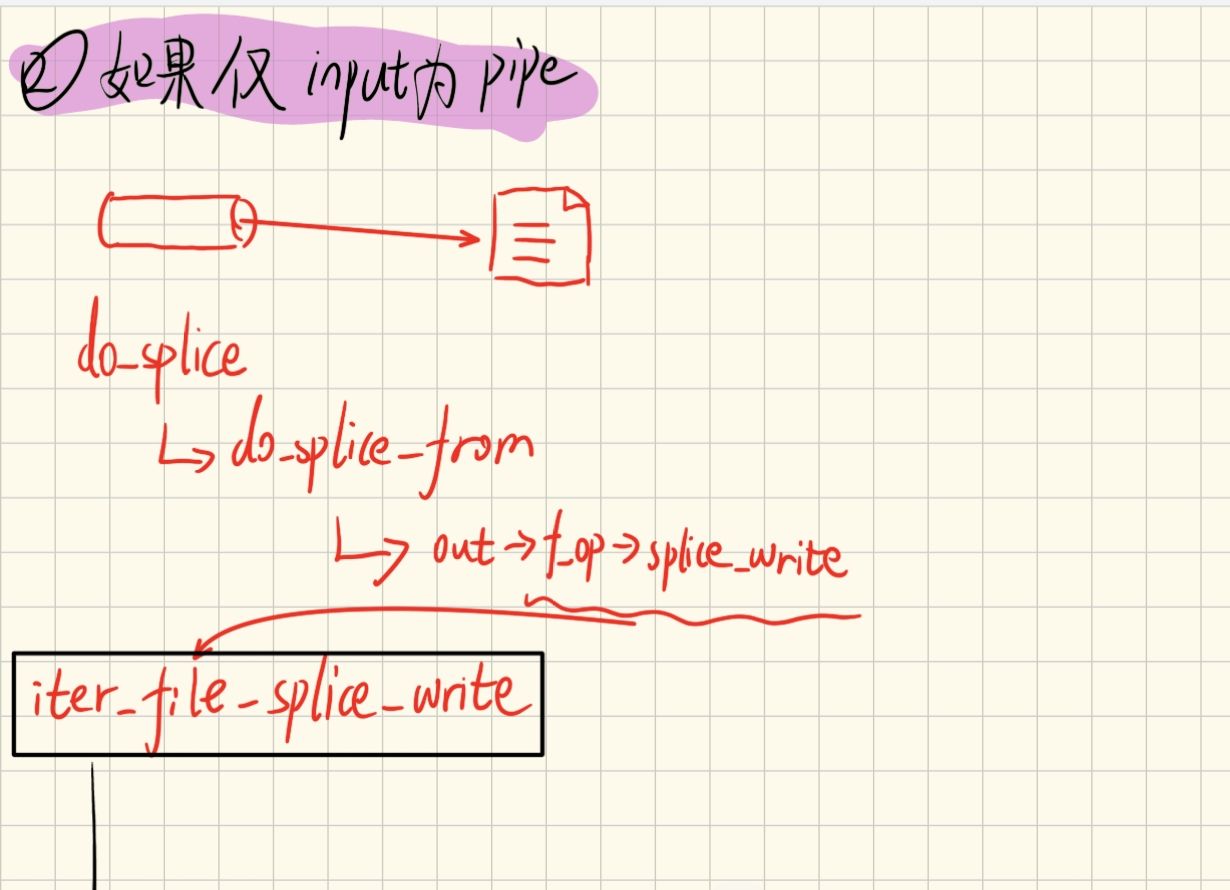 ② 如果仅 input为 pipe
do_splice
↳ do_splice_from
↳ out→f_op→splice_write
iter_file_splice_write